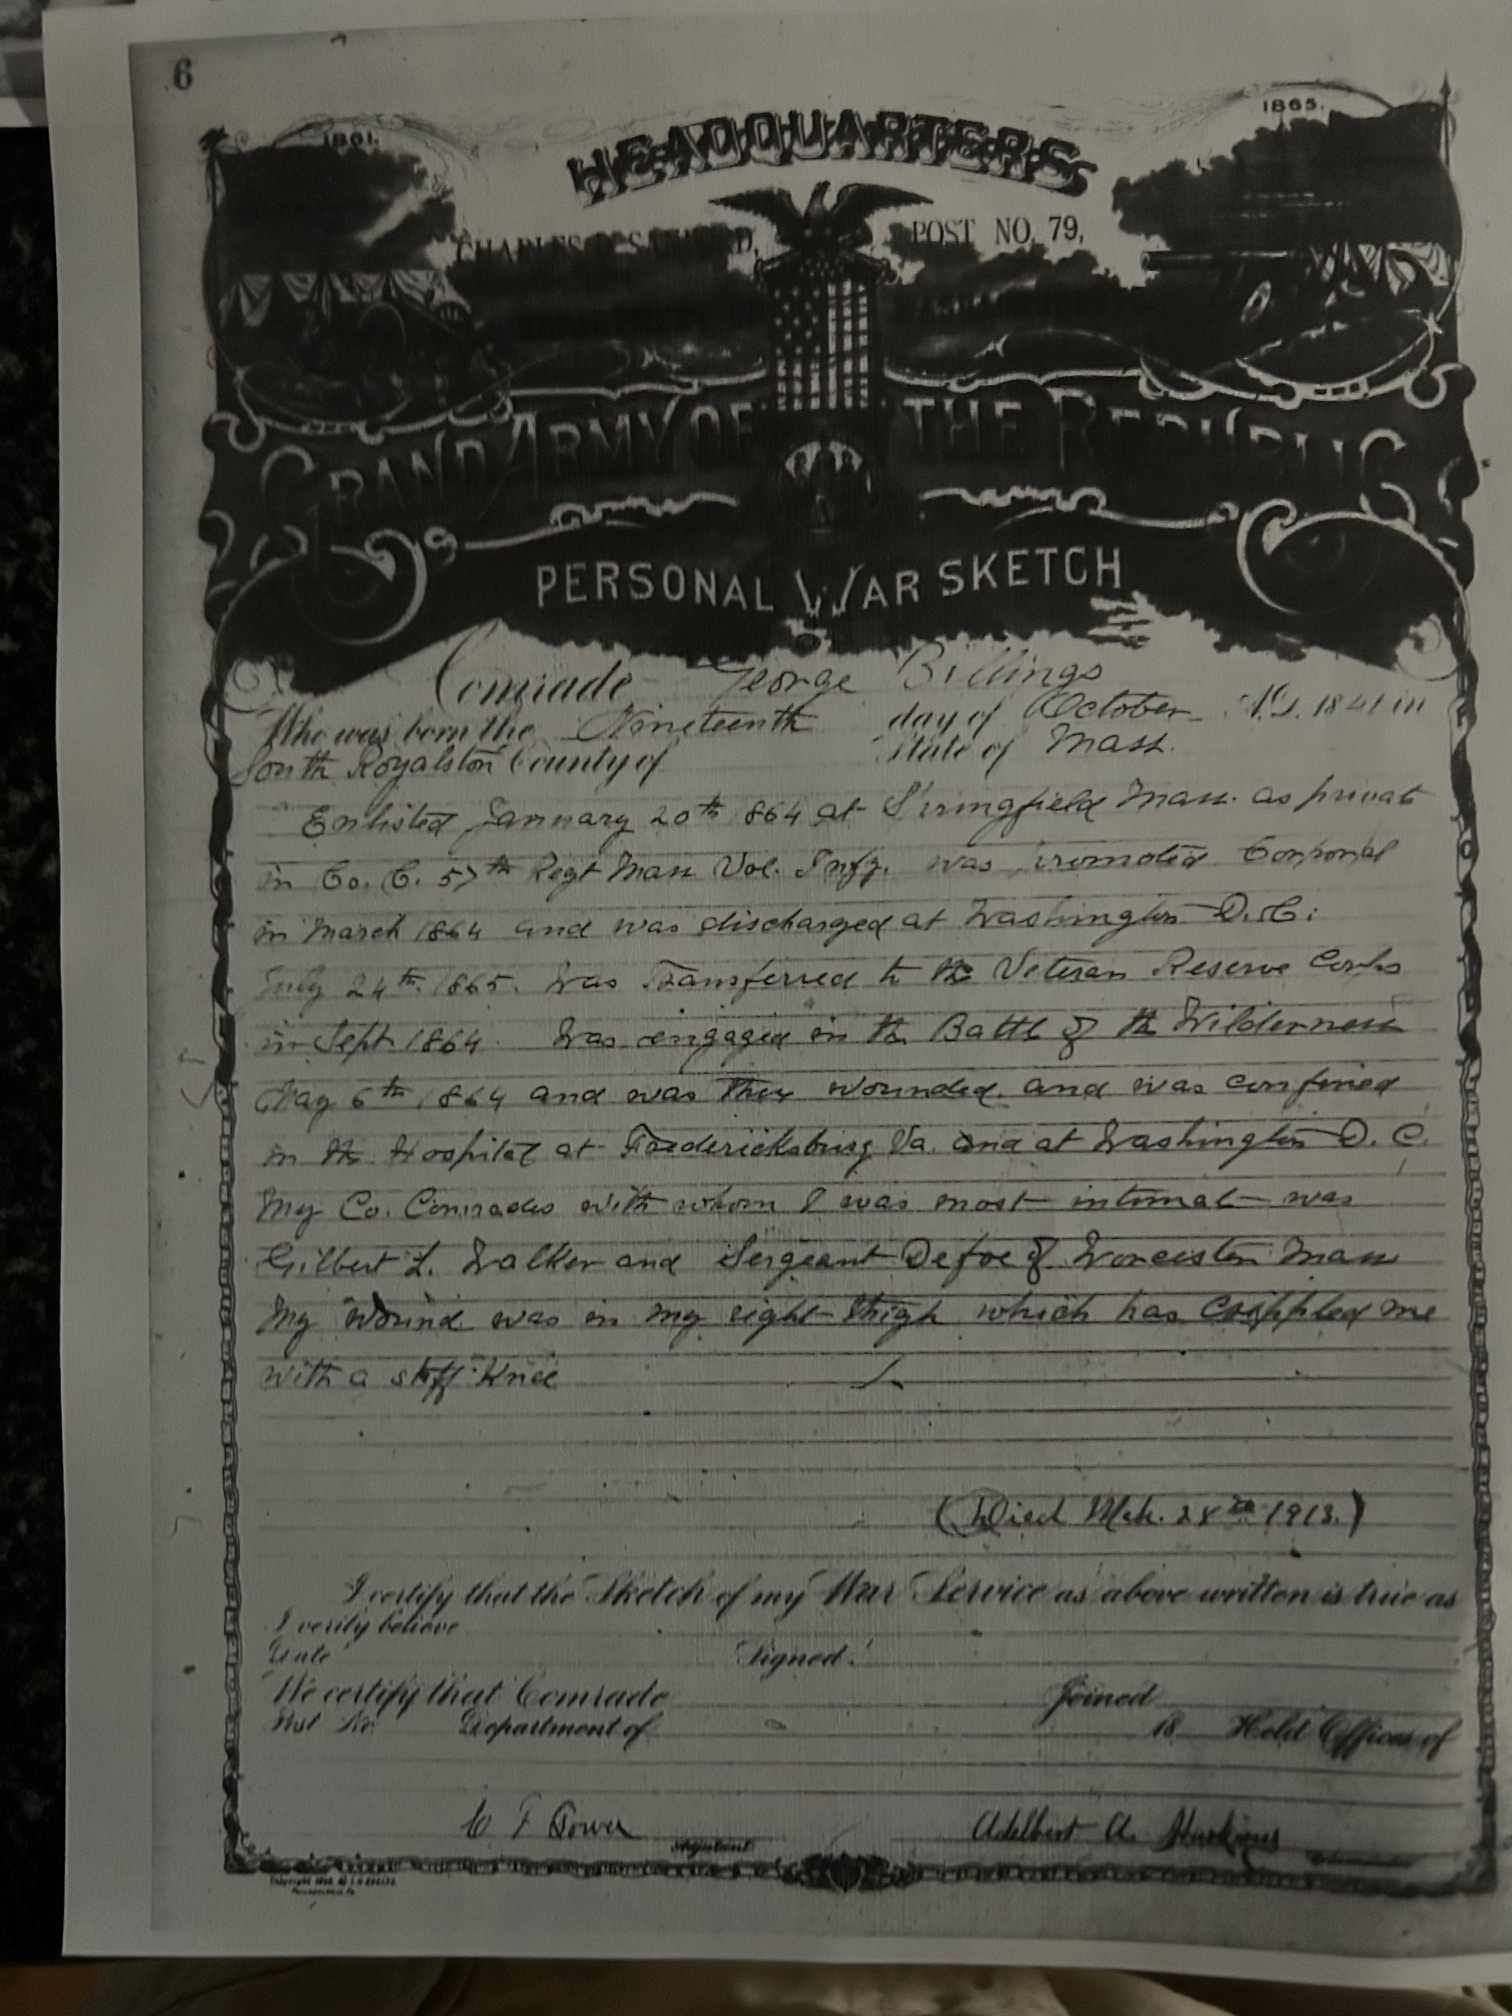 6
1861.
1865.
HEADQUARTERS
CHARLES D. SANFORD, POST NO. 79,
GRAND ARMY OF THE REPUBLIC
PERSONAL WAR SKETCH
Comrade George Billings
Who was born the Nineteenth day of October A.D. 1841 in
South Royalston County of State of Mass.
Enlisted January 20th 1864 at Springfield Mass. as private
in Co. C. 57th Regt Mass Vol. Infy. was promoted Corporal
in March 1864 and was discharged at Washington D.C.
July 24th. 1865. Was Transferred to the Veteran Reserve Corps
in Sept. 1864. Was engaged in the Battle of the Wilderness
May 6th 1864 and was then wounded. and was confined
in the Hospital at Fredericksburg Va. and at Washington D. C.
My Co. Comrades with whom I was most intimate was
Gilbert L. Walker and Sergeant Defoe of Worcester Mass
My wound was in my right thigh which has crippled me
with a stiff Knee
(Died Mch. 28th 1913.)
I certify that the Sketch of my War Service as above written is true as
I verily believe
Date Signed:
We certify that Comrade Joined
Post No. Department of 18 Held Offices of
C F Tower Adelbert A.
Adjutant Commander
Copyright